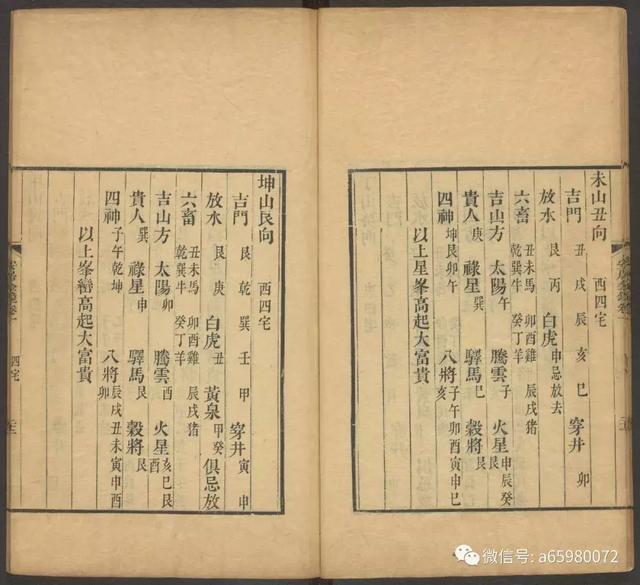 未山丑向 西四宅
吉門 丑 戌 辰 亥 巳 穿井 卯
放水 艮 丙 白虎 申忌放去
六畜 丑未馬 卯酉雞 辰戌豬 乾巽牛 癸丁羊
吉山方 太陽 卯 騰雲 子 火星 申辰癸
貴人 庚 祿星 巽 驛馬 巳 穀將 艮
四神 坤艮卯午 八將 子午卯酉寅申巳
以上星峯巒高起大富貴
坤山艮向
吉門 艮 乾 巽 壬 甲 穿井 寅 申
放水 艮 庚 白虎 丑 黃泉 甲癸 俱忌放
六畜 丑未馬 卯酉雞 辰戌豬 乾巽牛 癸丁羊
吉山方 太陽 卯 騰雲 酉 火星 亥巳艮酉
貴人 巽 祿星 申 驛馬 艮 穀將 艮
四神 子午乾坤 八將 辰戌丑未寅申酉卯
以上峯巒高起大富貴
四宅
微信号: a65980072